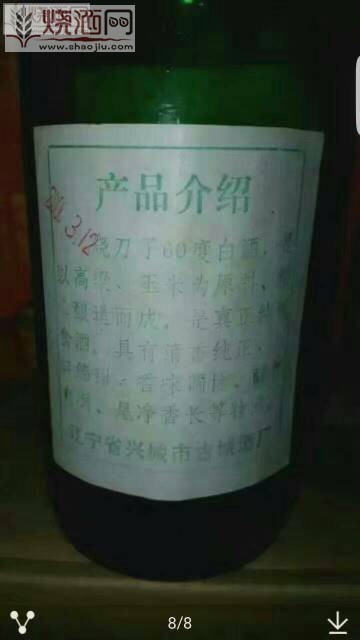 烧酒网
www.shaojiu.com
产品介绍
3.12
烧刀子60度白酒，是
以高粱、玉米为原料，
酿造而成，是真正纯
食酒，具有清香纯正、
绵甜、香味
尾净香长等特
辽宁省兴城市古城酒厂
8/8